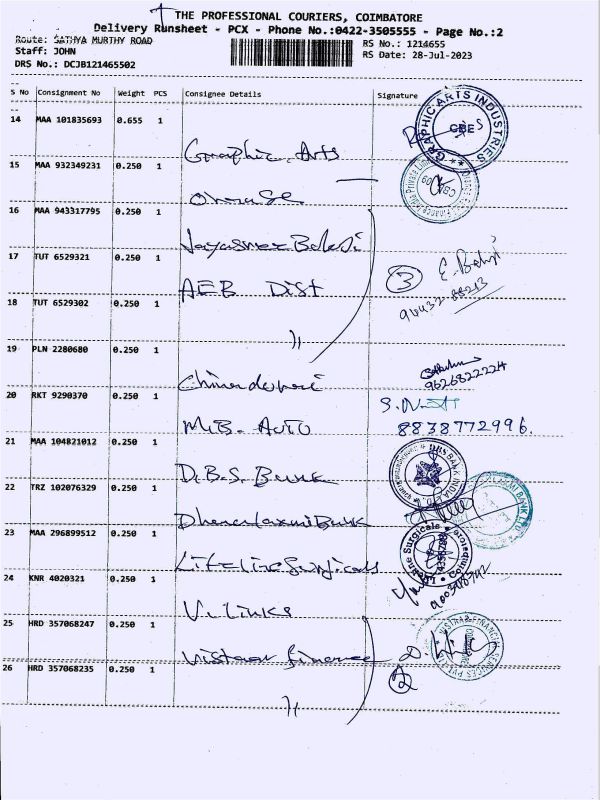 THE PROFESSIONAL COURIERS, COIMBATORE
Delivery Runsheet - PCX - Phone No.:0422-3505555 - Page No.:2
Route: SATHYA MURTHY ROAD
RS No.: 1214655
Staff: JOHN
RS Date: 28-Jul-2023
DRS No.: DCJB121465502
S No Consignment No Weight PCS Consignee Details Signature
14 MAA 101835693 0.655 1 Graphic Arts
GRAPHIC ARTS INDUSTRIES CBE
15 MAA 932349231 0.250 1
16 MAA 943317795 0.250 1 Balaji
17 TUT 6529321 0.250 1 AEB Dist
3 E. Balaji
96432 88213
18 TUT 6529302 0.250 1 〃
19 PLN 2280680 0.250 1
9626822224
20 RKT 9290370 0.250 1 M.B. AUTO
8838772996.
21 MAA 104821012 0.250 1 D.B.S. Bank
DBS BANK INDIA
22 TRZ 102076329 0.250 1 Dhanalaxmi Bank
LAXMI BANK LTD.
23 MAA 296899512 0.250 1 Lifeline Surgicals
Lifeline Surgicals Coimbatore
24 KNR 4020321 0.250 1 V. Links
25 HRD 357068247 0.250 1 Vistaar finance
2
26 HRD 357068235 0.250 1 〃